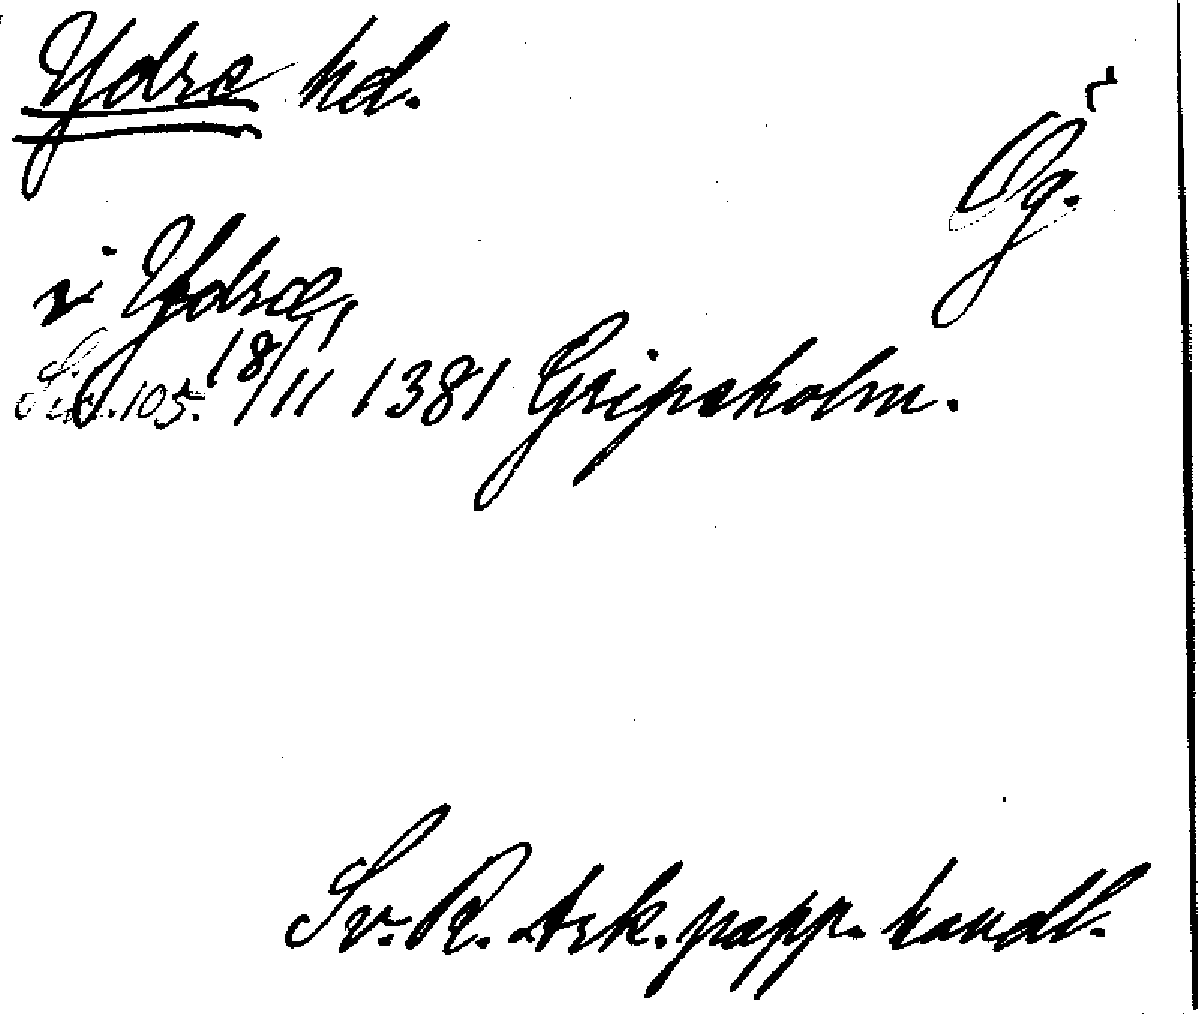 Ydre hd.
Ög.
i Ydræ
Sid. 105. 18/11 1381 Gripsholm.
Sv. R. Ark. papp. handl.